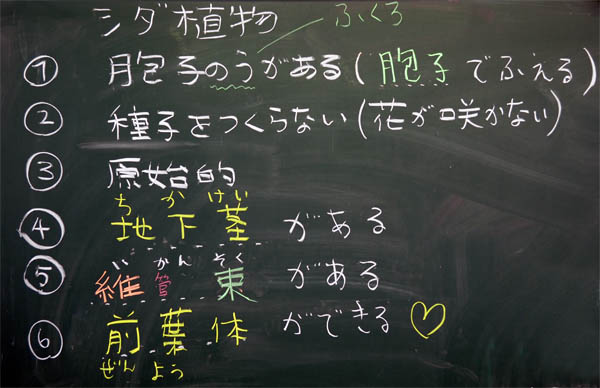 シダ植物 ふくろ
① 胞子のうがある(胞子でふえる)
② 種子をつくらない(花が咲かない)
③ 原始的
ち か けい
④ 地下茎 がある
い かん そく
⑤ 維管束 がある
⑥ 前葉体 ができる ♡
ぜん よう